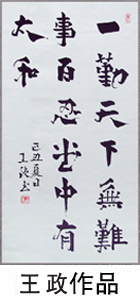 一勤天下無難
事百忍堂中有
太和
己丑夏日
王政书
王政作品